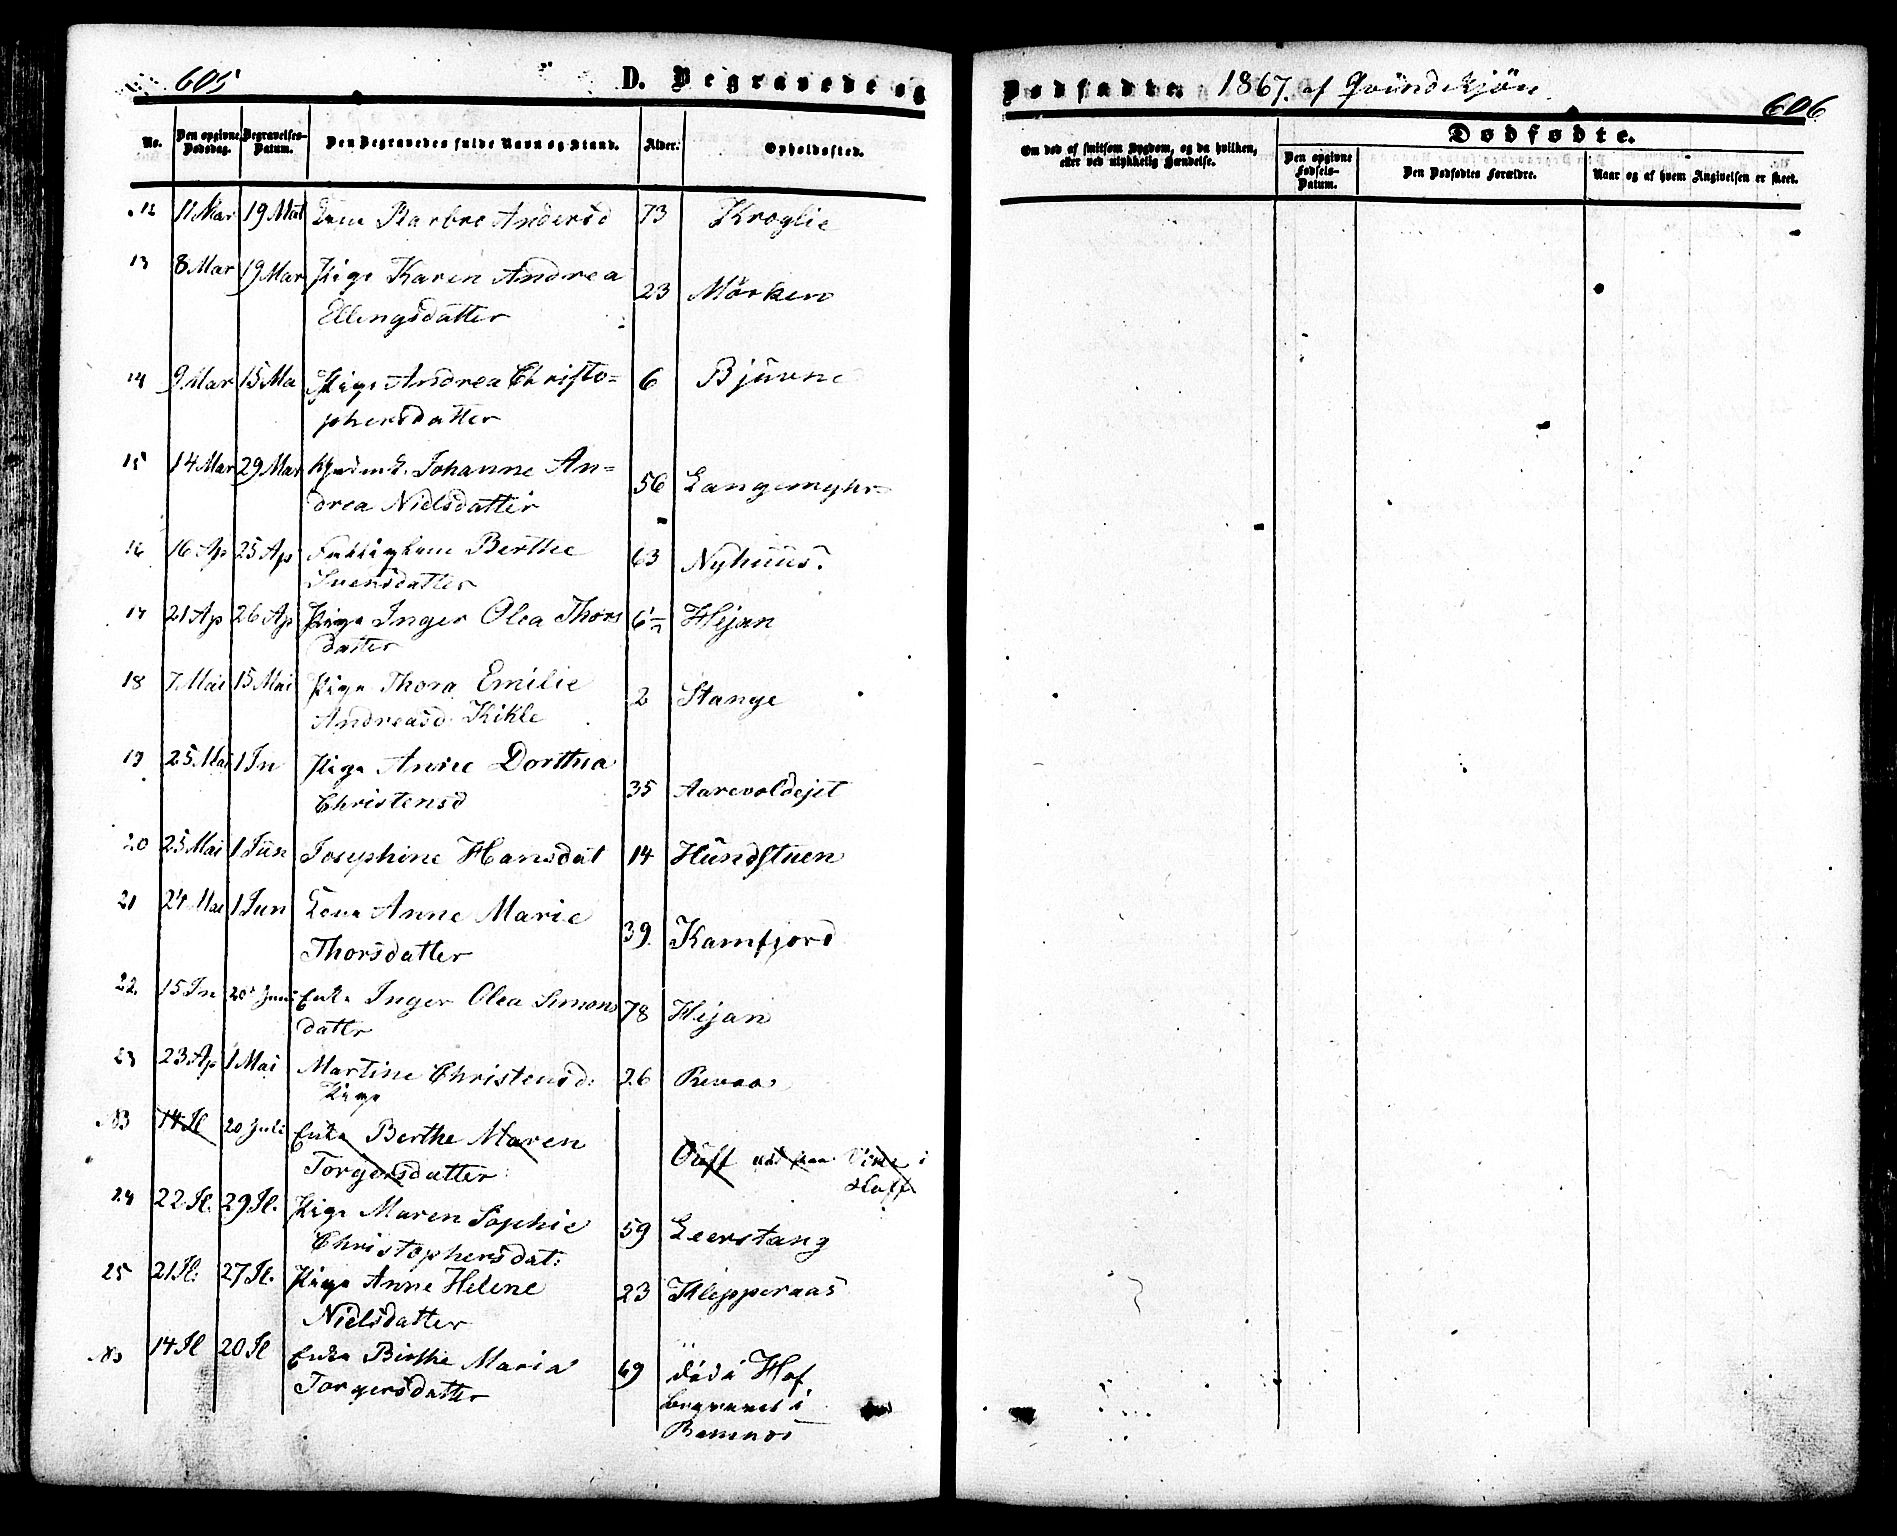 605
D. Begravede og
Dødfødte 1867. af Qvindekjön
606
No.
Den opgivne Dødsdag.
Begravelses-Datum.
Den Begravedes fulde Navn og Stand.
Alder.
Opholdssted.
Om død af smitsom Sygdom, og da hvilken, eller ved ulykkelig Hændelse.
Dødfødte.
Den opgivne Fødsels-Datum.
Den Dødfødtes Forældre.
Naar og af hvem Angivelsen er skeet.
12 11 Mar 19 Mar Barbro Andersd 73 Kroglie
13 8 Mar 19 Mar Pige Karen Andrea 23 Mörken
Ellingsdatter
14 9 Mar 15 Ma Pige Andrea Christo= 6 Bjurne
phersdatter
15 14 Mar 29 Mar Johanne An= 56 Langemyhr
drea Nielsdatter
16 16 Ap 25 Ap Berthe 63 Nyhuus.
Svensdatter
17 21 Ap 26 Ap Pige Inger Olea Thors Hejan
datter
18 7 Mai 15 Mai Pige Thora Emilie 2 Stange
Andreasd Kikle
19 25 Mai 1 Jn Pige Anne Dorthea 35 Aarevoldejet
Christensd
20 25 Mai 1 Jun Josephine Hansdat 14 Hundstuen
21 24 Mai 1 Jun Kone Anne Marie 39. Kamfjord
Thorsdatter
22. 15 Jn 20 Juni Enke Inger Olea Simons 78 Hejan
datter
23 23 Ap 1 Mai Martine Christensd. 26
Pige
NB 14 Jl 20 Juli Enke Berthe Maren i
Torgersdatter Hoff
24 22 Jl. 29 Jl. Pige Maren Sophie 59 Leerstang
Christophersdat:
25 21 Jl: 27 Jl. Pige Anne Helene 23 Klepperaas
Nielsdatter
NB 14 Jl 20 Jl Enke Birthe Maria 69 död i Hof
Torgersdatter begravet i